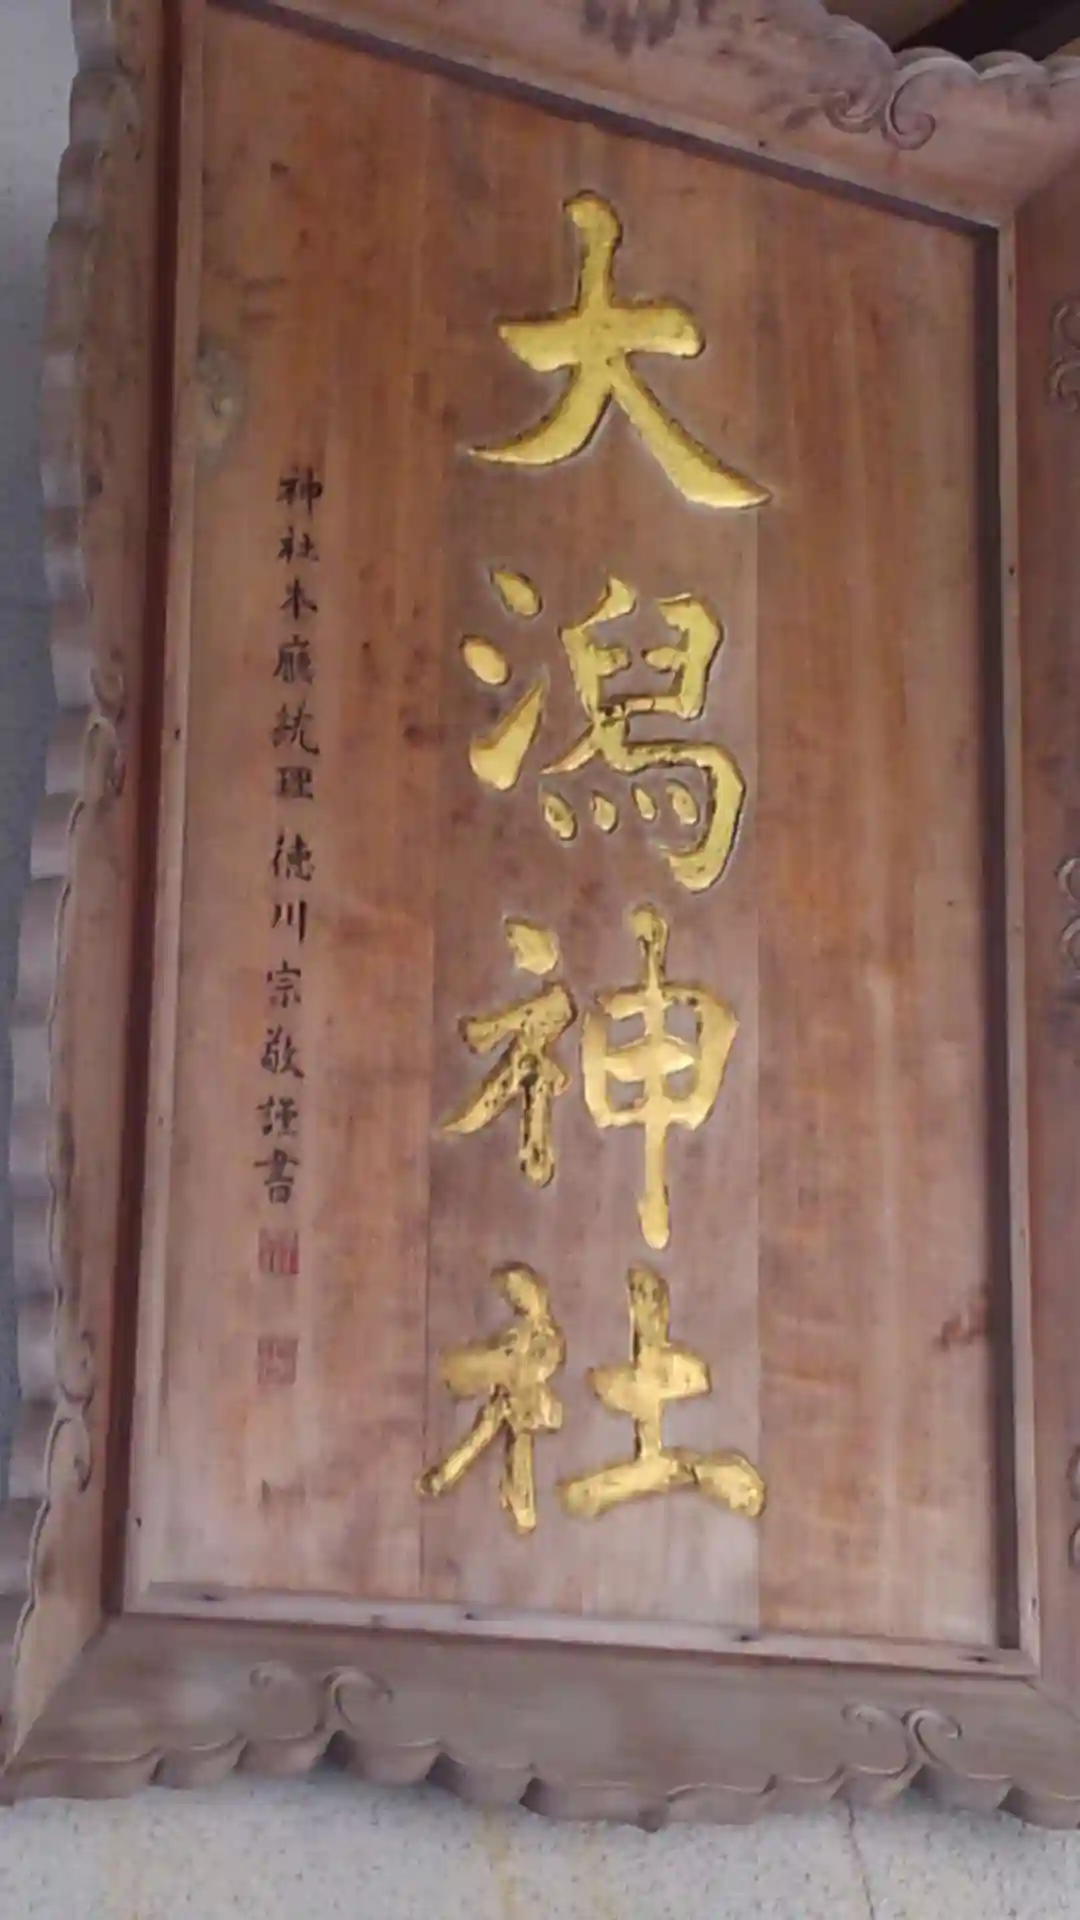 大潟神社
神社本廳統理 徳川宗敬謹書